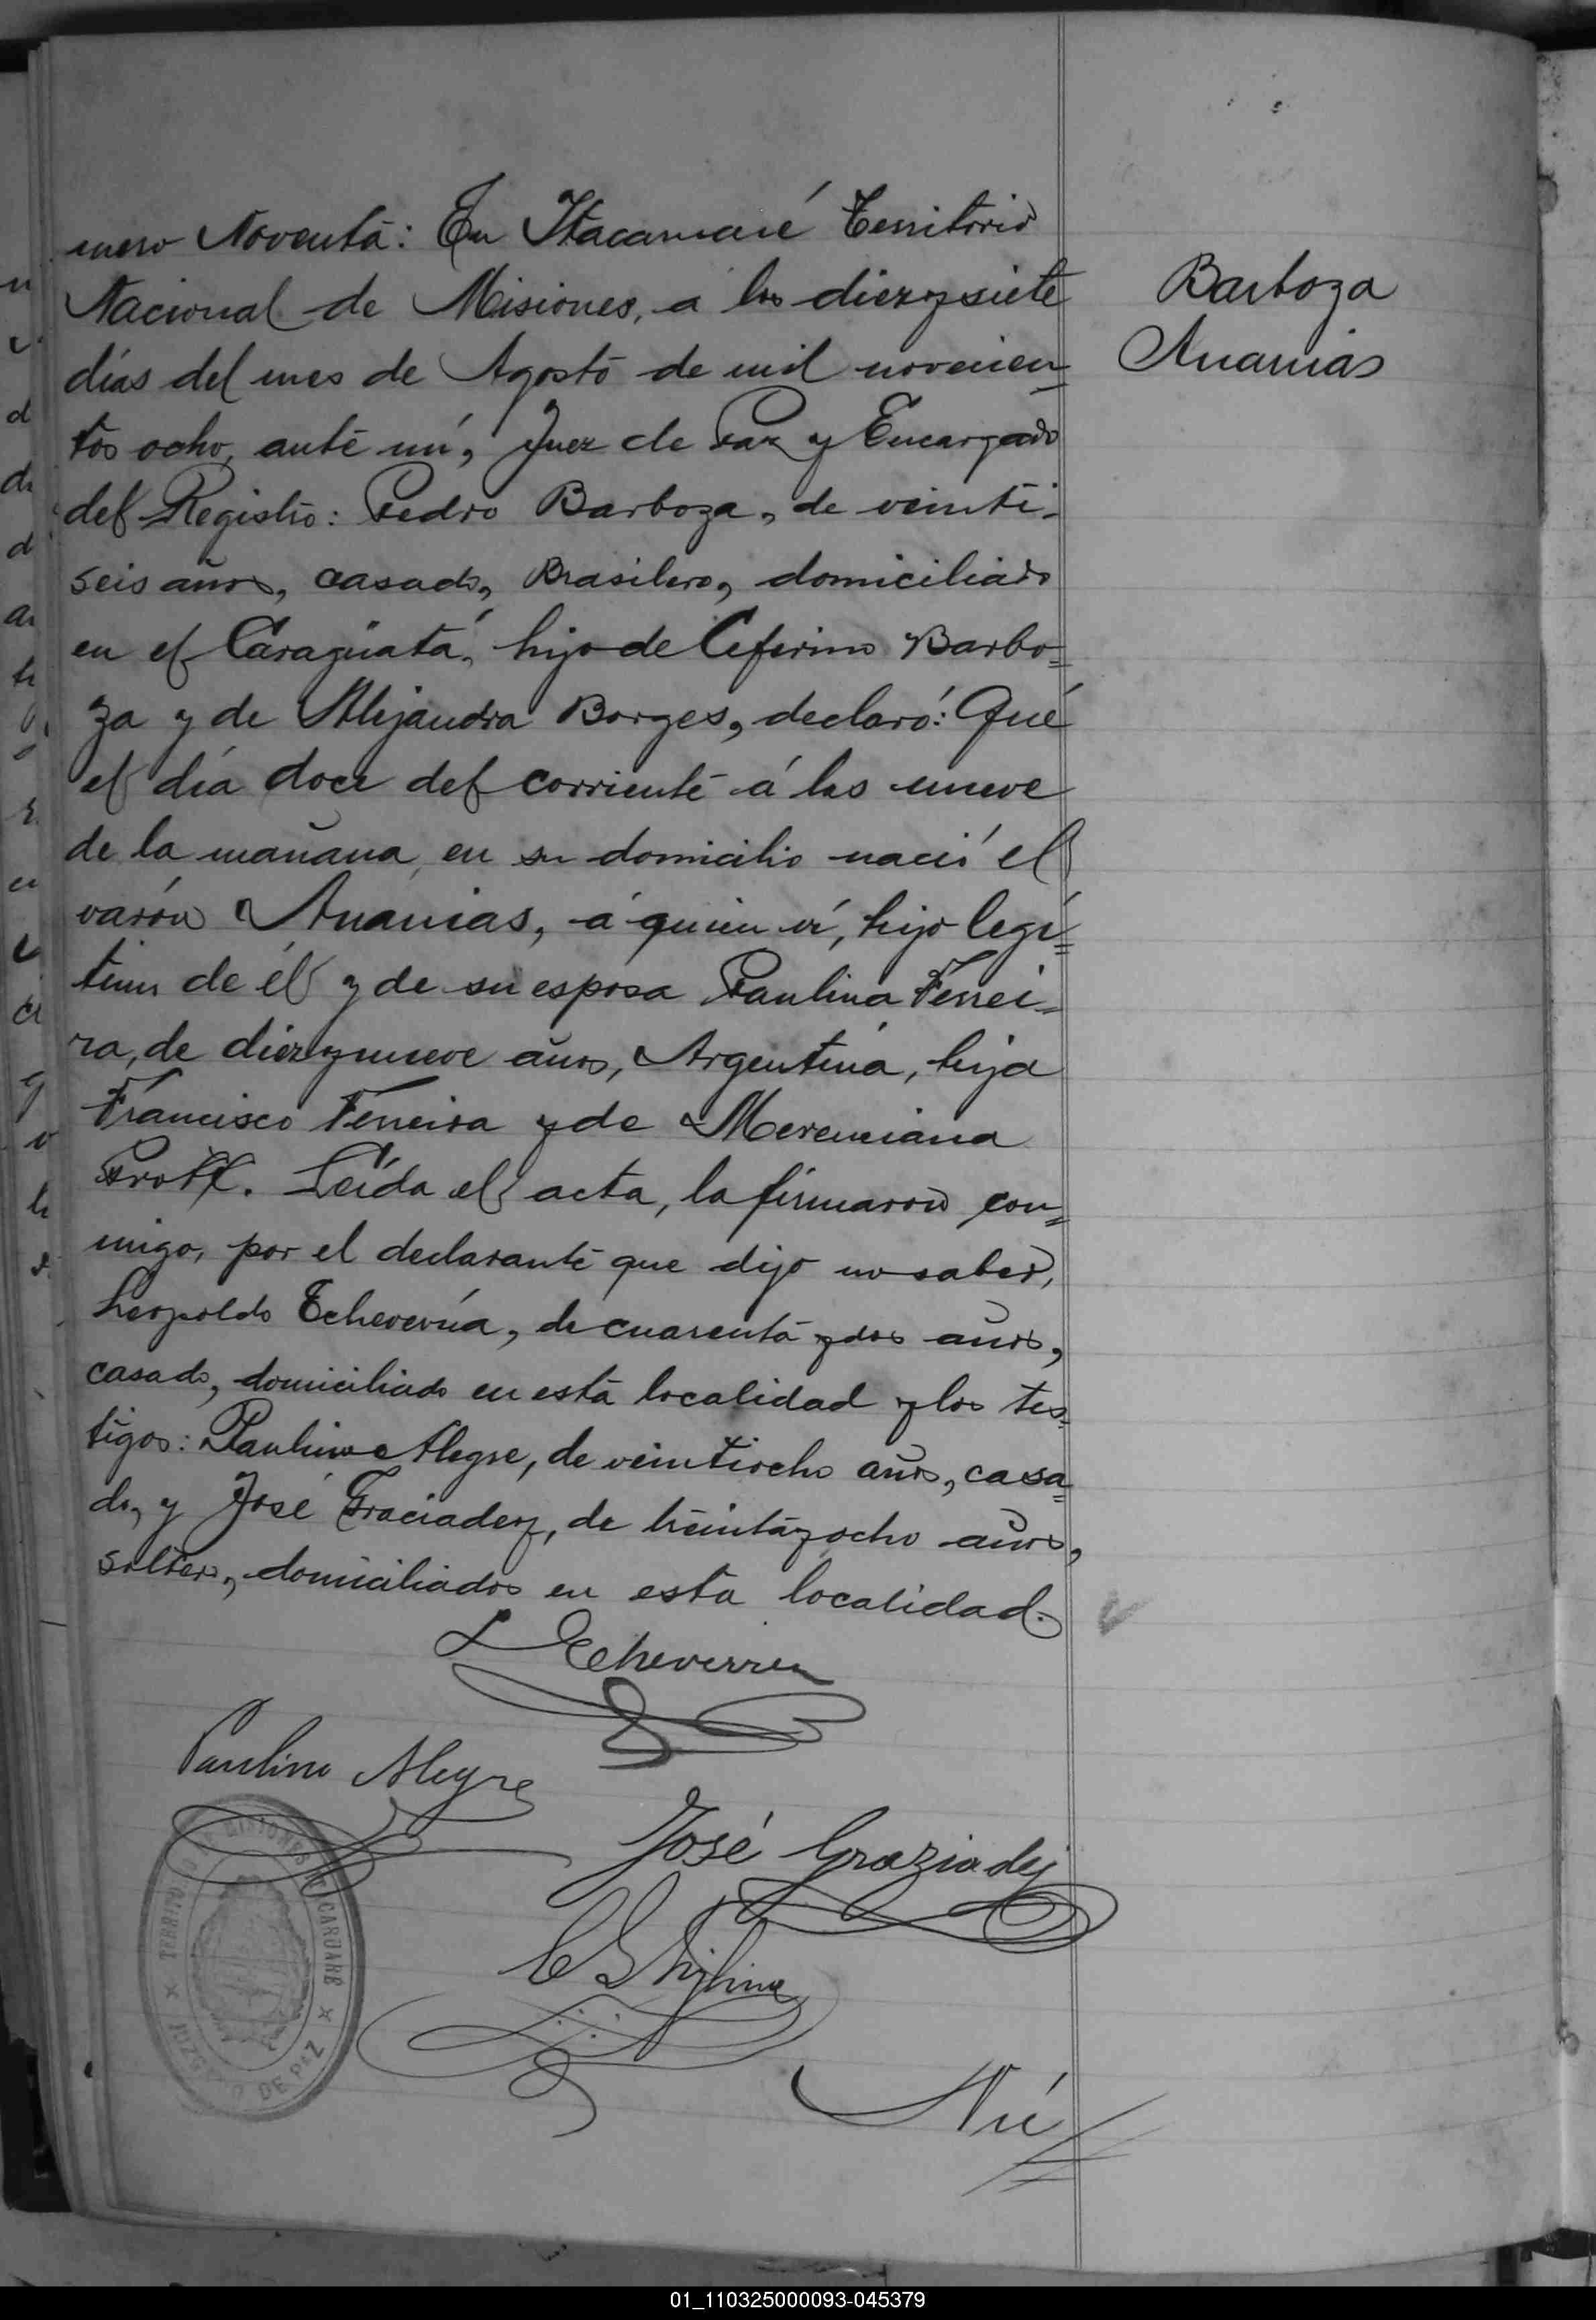 mero Noventa: En Itacaruaré Territorio
Nacional de Misiones, a los diez y siete
días del mes de Agosto de mil novecien=
tos ocho, ante mí, Juez de Paz y Encargado
del Registro: Pedro Barboza, de veinti-
seis años, casado, Brasilero, domiciliado
en el Caraguatá, hijo de Ceferino Barbo=
za y de Alejandra Borges, declaró: Qué
el día doce del corriente á las nueve
de la mañana, en su domicilio nació el
varón Ananias, á quien ví, hijo legí=
timo de él y de su esposa Paulina Ferrei=
ra, de diez y nueve años, Argentina, hija
Francisco Ferreira y de Merenciana
Leída el acta, la firmaron con=
migo, por el declarante que dijo no saber,
Leopoldo Echeverría, de cuarenta y dos años,
casado, domiciliado en esta localidad y los tes=
tigos: Paulino Alegre, de veintiocho años, casa=
do, y José Graciadey, de treinta y ocho años,
soltero, domiciliados en esta localidad.
Barboza
Ananias
L Echeverria
Paulino Alegre
José Graziadey
TERRITORIO DE MISIONES ITACARUARÉ
JUZGADO DE PAZ
Nú
01_110325000093-045379